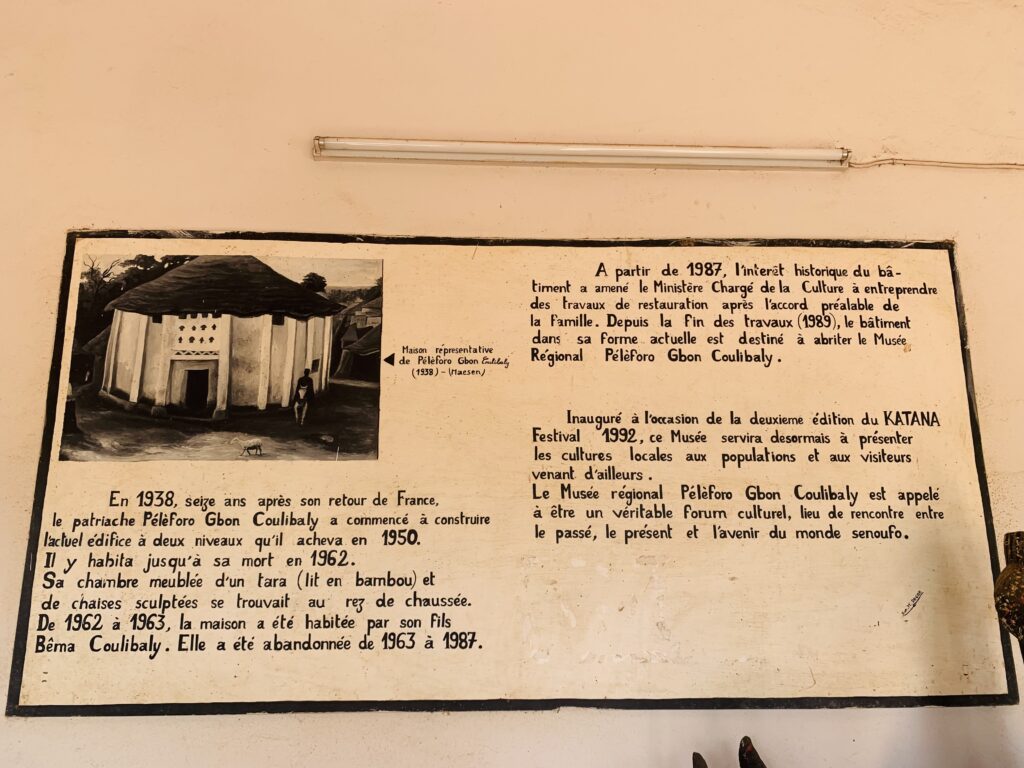 Maison représentative
de Pélèforo Gbon Coulibaly
(1938) - (Maesen)
En 1938, seize ans après son retour de France,
le patriache Pélèforo Gbon Coulibaly a commencé à construire
l'actuel édifice à deux niveaux qu'il acheva en 1950.
Il y habita jusqu'à sa mort en 1962.
Sa chambre meublée d'un tara (lit en bambou) et
de chaises sculptées se trouvait au rez de chaussée.
De 1962 à 1963, la maison a été habitée par son fils
Bêma Coulibaly. Elle a été abandonnée de 1963 à 1987.
A partir de 1987, l'interêt historique du bâ-
timent a amené le Ministère Chargé de la Culture à entreprendre
des travaux de restauration après l'accord préalable de
la famille. Depuis la fin des travaux (1989), le bâtiment
dans sa forme actuelle est destiné à abriter le Musée
Régional Pélèforo Gbon Coulibaly.
Inauguré à l'occasion de la deuxieme édition du KATANA
Festival 1992, ce Musée servira desormais à présenter
les cultures locales aux populations et aux visiteurs
venant d'ailleurs.
Le Musée régional Pélèforo Gbon Coulibaly est appelé
à être un véritable forum culturel, lieu de rencontre entre
le passé, le présent et l'avenir du monde senoufo.